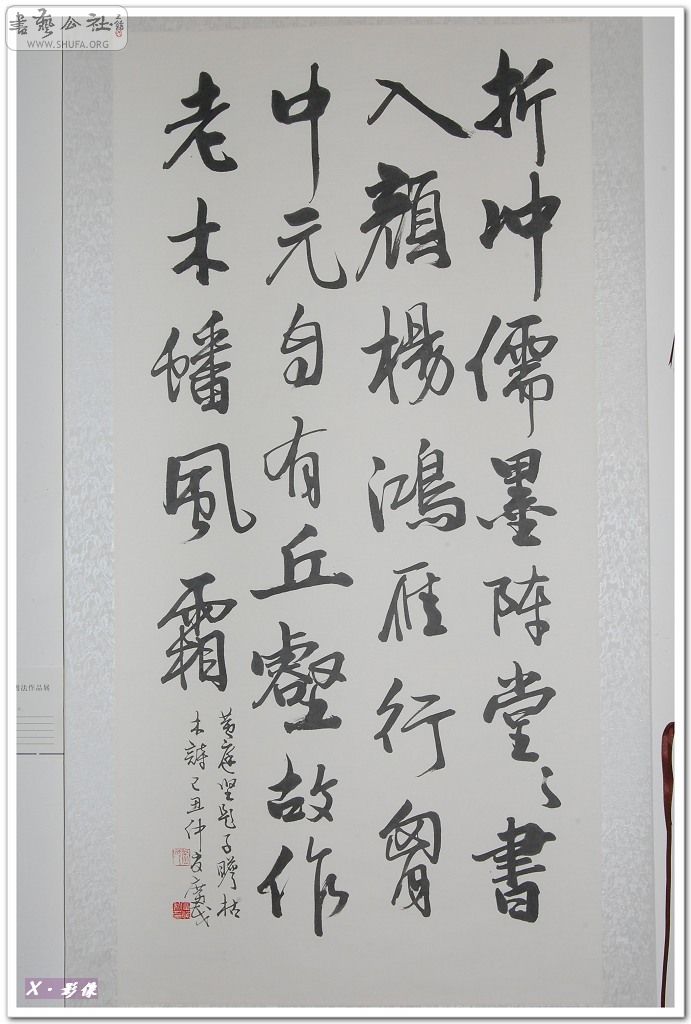 書藝公社
WWW.SHUFA.ORG
折冲儒墨阵堂〻書
入顔楊鴻雁行胷
中元自有丘壑故作
老木蟠風霜
黄庭坚题子瞻枯
木詩己丑仲夏庆
法作品展
X·影像